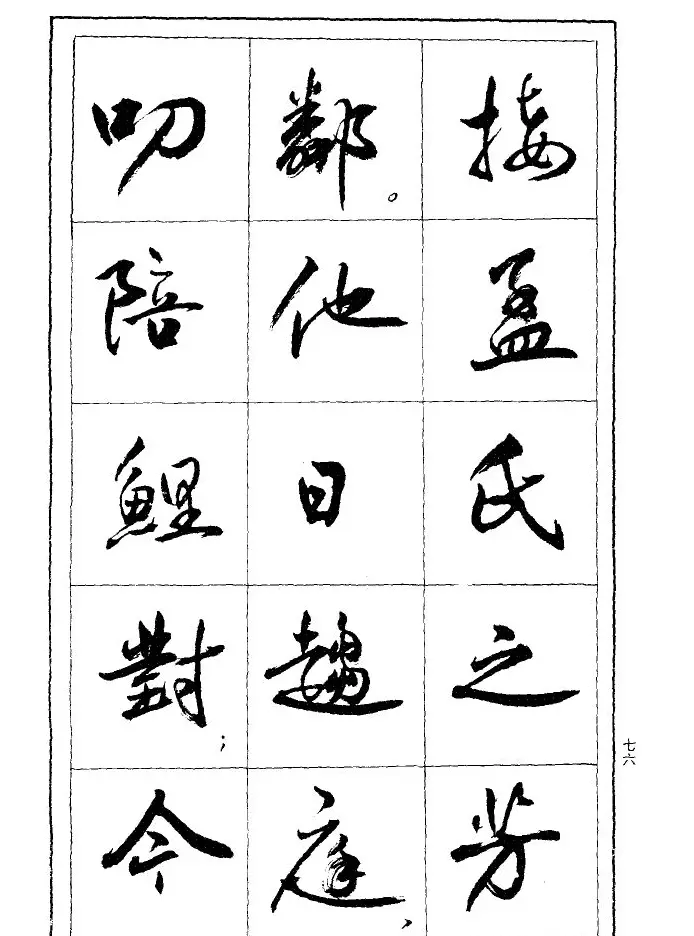 接孟氏之芳
鄰。他日趨庭，
叨陪鯉對；今
七六